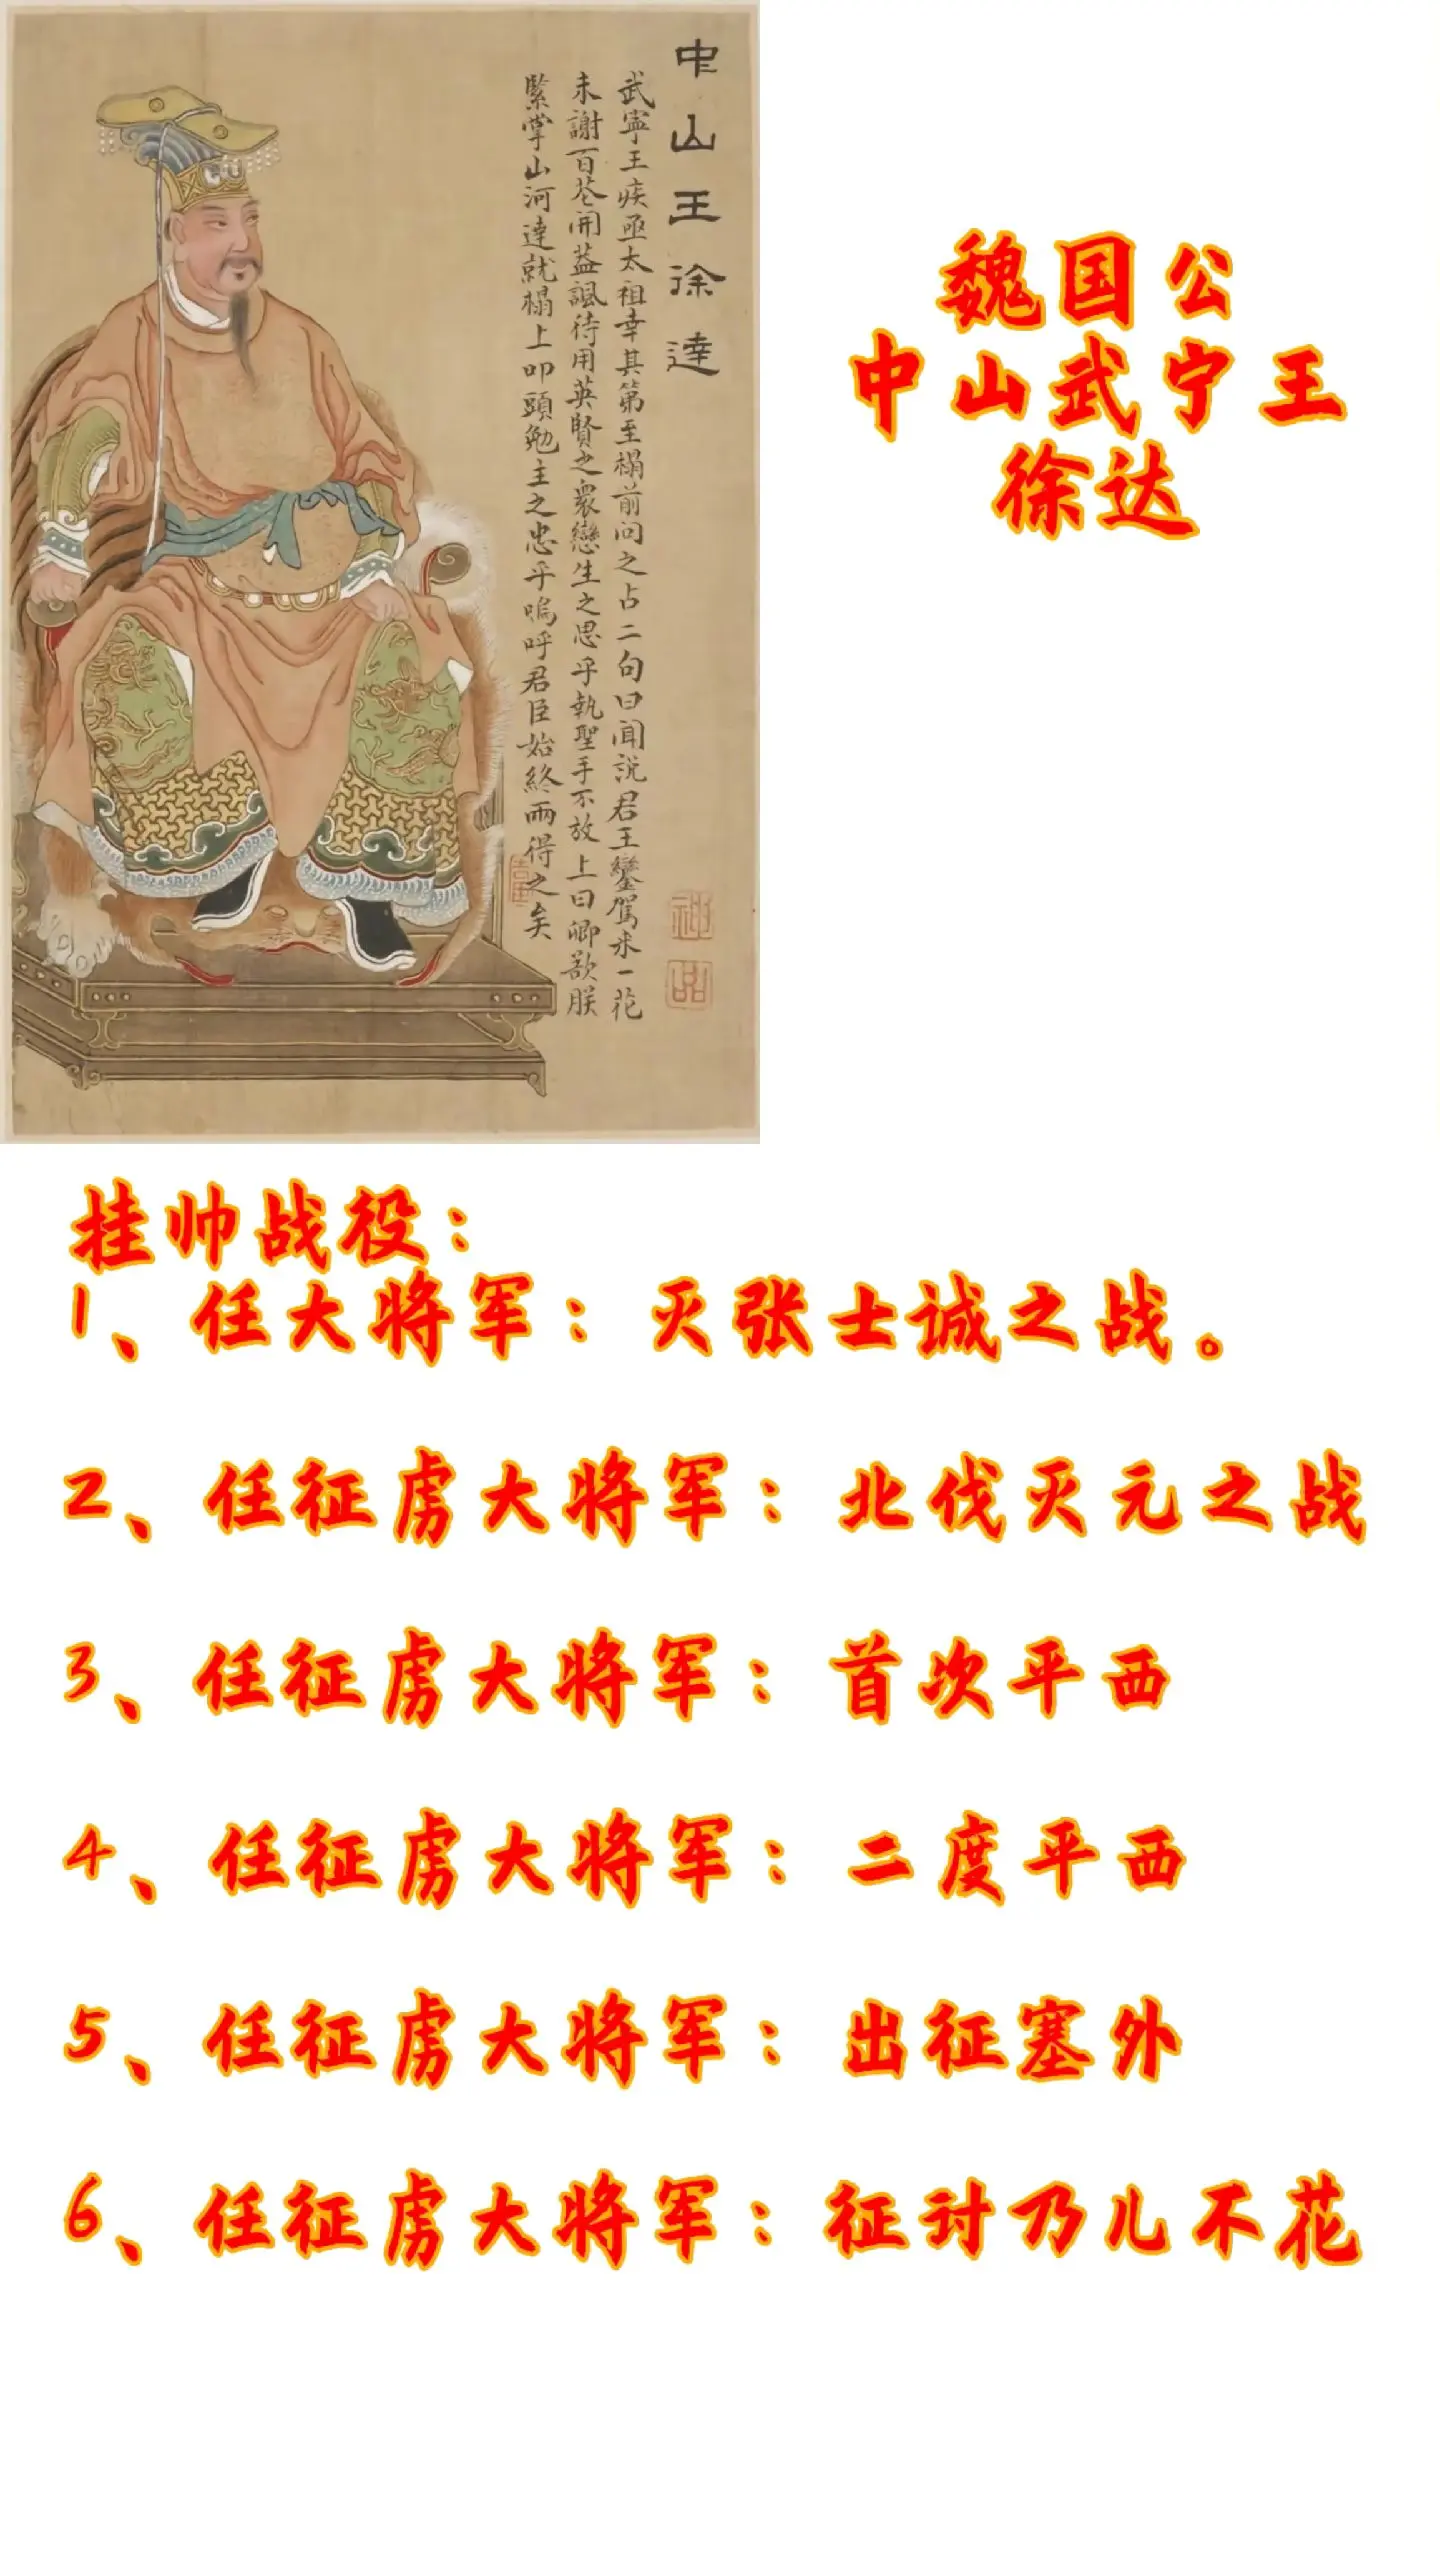 中山王徐達
武寧王疾亟太祖幸其第至榻前問之占二句曰聞說君王鑾駕来一花
未謝百花開蓋諷待用英賢之衆戀生之思乎執聖手不放上曰卿欲朕
緊掌山河達就榻上叩頭勉主之忠乎嗚呼君臣始終兩得之矣
魏国公
中山武宁王
徐达
挂帅战役：
1、任大将军：灭张士诚之战。
2、任征虏大将军：北伐灭元之战
3、任征虏大将军：首次平西
4、任征虏大将军：二度平西
5、任征虏大将军：出征塞外
6、任征虏大将军：征讨乃儿不花